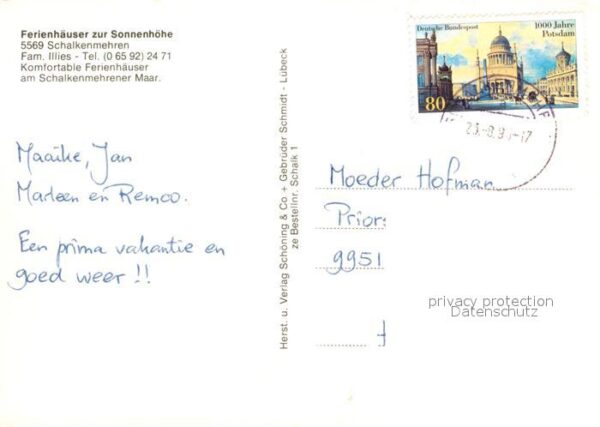 Ferienhäuser zur Sonnenhöhe
5569 Schalkenmehren
Fam. Illies - Tel. (0 65 92) 24 71
Komfortable Ferienhäuser
am Schalkenmehrener Maar.
Maaike, Jan
Marleen en Remco.
Een prima vakantie en
goed weer !!
Herst. u. Verlag Schöning & Co + Gebrüder Schmidt - Lübeck
ze Bestellnr. Schalk 1
Deutsche Bundespost
1000 Jahre
Potsdam
80
Moeder Hofman
Prior
9951
privacy protection
Datenschutz